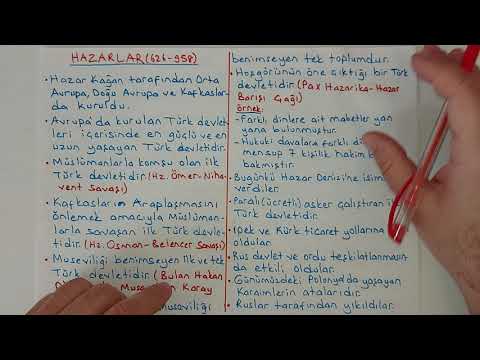 HAZARLAR (626-958)
• Hazar Kağan tarafından Orta
Avrupa, Doğu Avrupa ve Kafkaslar-
da kuruldu.
• Avrupa'da kurulan Türk devlet-
leri içerisinde en güçlü ve en
uzun yaşayan Türk devletidir.
• Müslümanlarla komşu olan ilk
Türk devletidir. (Hz. Ömer-Niha-
vent Savaşı)
• Kafkasların Araplaşmasını
önlemek amacıyla Müslüman-
larla savaşan ilk Türk devle-
tidir. (Hz. Osman-Belencer Savaşı)
• Museviliği benimseyen ilk ve tek
Türk devletidir. (Bulan Hakan
Karay
museviliği
benimseyen tek toplumdur.
• Hoşgörünün öne çıktığı bir Türk
devletidir. (Pax Hazarika-Hazar
Barışı Çağı)
Örnek:
- Farklı dinlere ait mabetler yan
yana bulunmuştur.
- Hukuki davalara farklı di
mensup 7 kişilik hakim
bakmıştır.
• Bugünkü Hazar Denizi'ne isim
verdiler.
• Paralı (ücretli) asker çalıştıran il
Türk devletidir.
• İpek ve Kürk ticaret yollarına
oldular.
• Rus devlet ve ordu teşkilatlanması
da etkili oldular.
• Günümüzdeki Polonya'da yaşayan
Karaimlerin atalarıdır.
• Ruslar tarafından yıkıldılar.